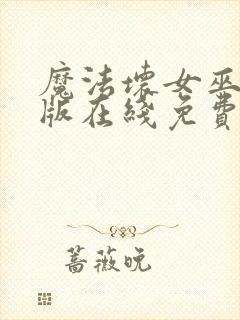 魔法坏女巫
版在线免费
蔷薇晚